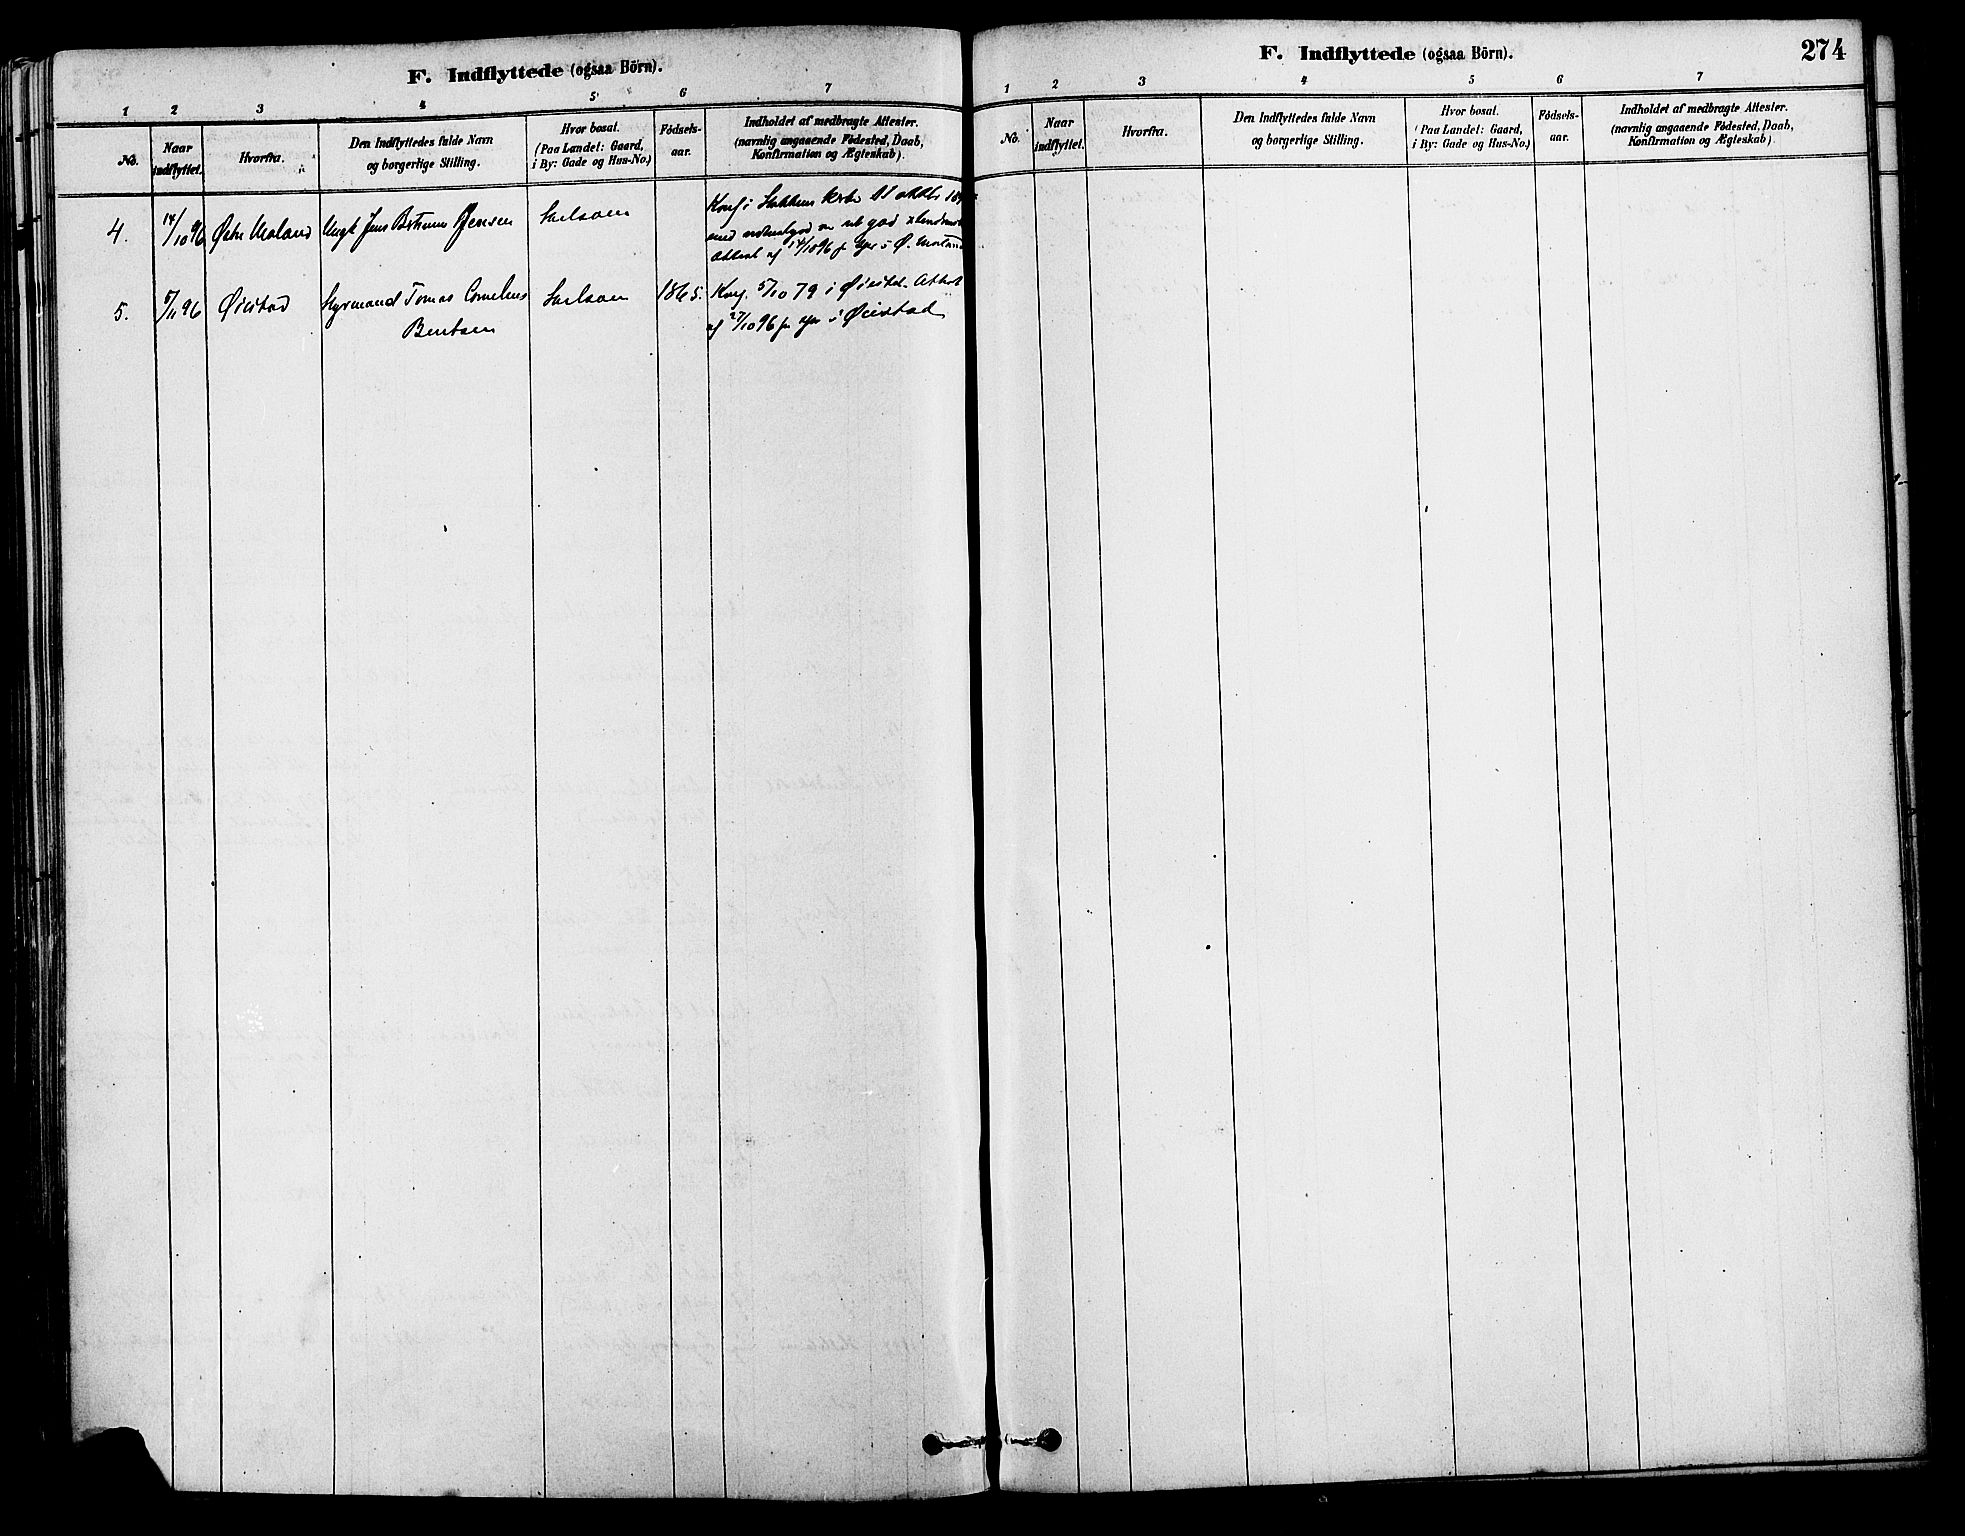 F. Indflyttede (ogsaa Börn).
1 2 3 4 5 6 7
No. Naar indflyttet. Hvorfra. Den Indflyttedes fulde Navn og borgerlige Stilling. Hvor bosat. (Paa Landet: Gaard, i By: Gade og Hus-No.) Födsels-aar. Indholdet af medbragte Attester. (navnlig angaaende Födested, Daab, Konfirmation og Ægteskab).
4. 14/10 96 Østre Moland Ungk Jens Jensen
Konf. i kirke oktbr
med god
Attest af 14/10 96 fr spr i Ø. Moland
5. 5/11 96 Øiestad Styrmand Tomas Cornelius 1865. Konf. 5/10 79 i Øiestd. Attest
Bentsen af 27/10 96 fr spr i Øiestad
F. Indflyttede (ogsaa Börn).
274
1 2 3 4 5 6 7
No. Naar indflyttet. Hvorfra. Den Indflyttedes fulde Navn og borgerlige Stilling. Hvor bosat. (Paa Landet: Gaard, i By: Gade og Hus-No.) Födsels-aar. Indholdet af medbragte Attester. (navnlig angaaende Födested, Daab, Konfirmation og Ægteskab)